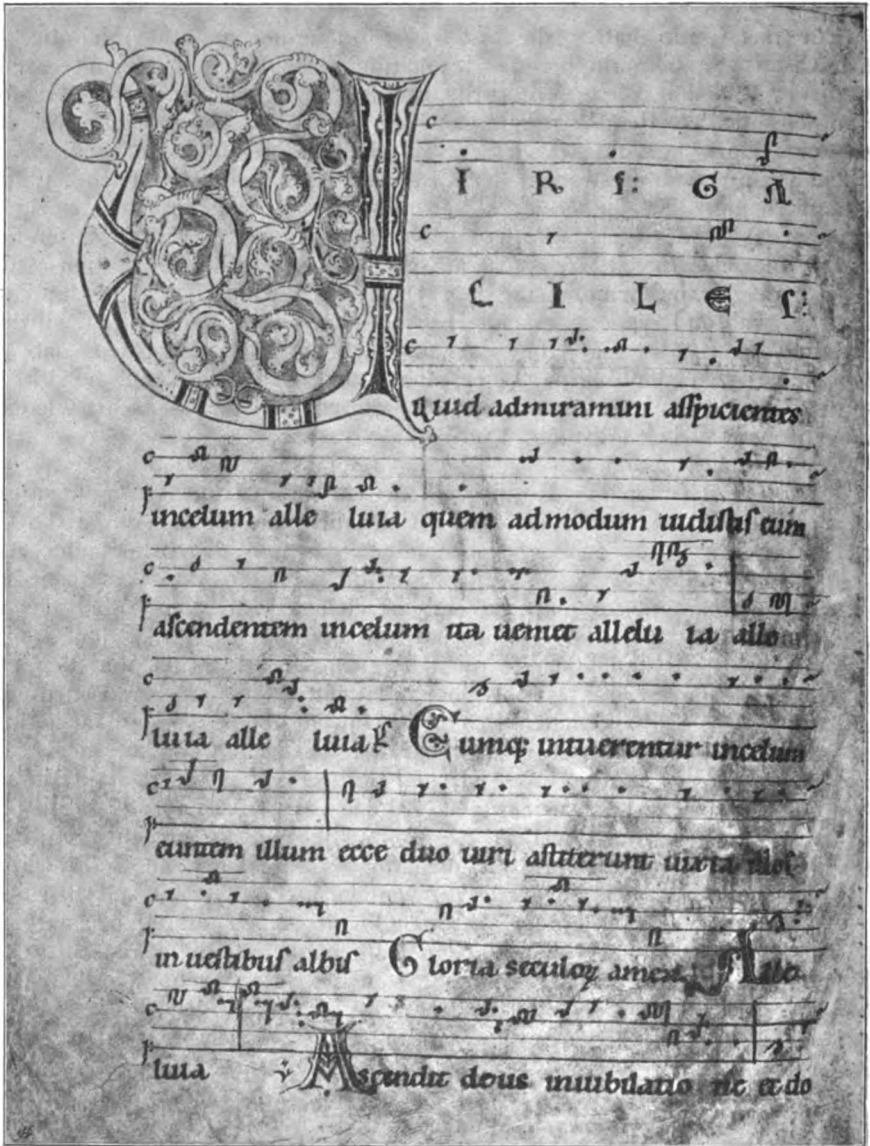 VIRI GA
LILEI
quid admiramini aspicientes
incelum alle luia quem admodum uidistis eum
ascendentem incelum ita ueniet allelu ia alle
luia alle luia Cumq; intuerentur incelum
euntem illum ecce duo uiri astiterunt iuxta illos
in uestibus albis Gloria seculoꝝ amen Alle
luia Ascendit deus iniubilatio ne et do